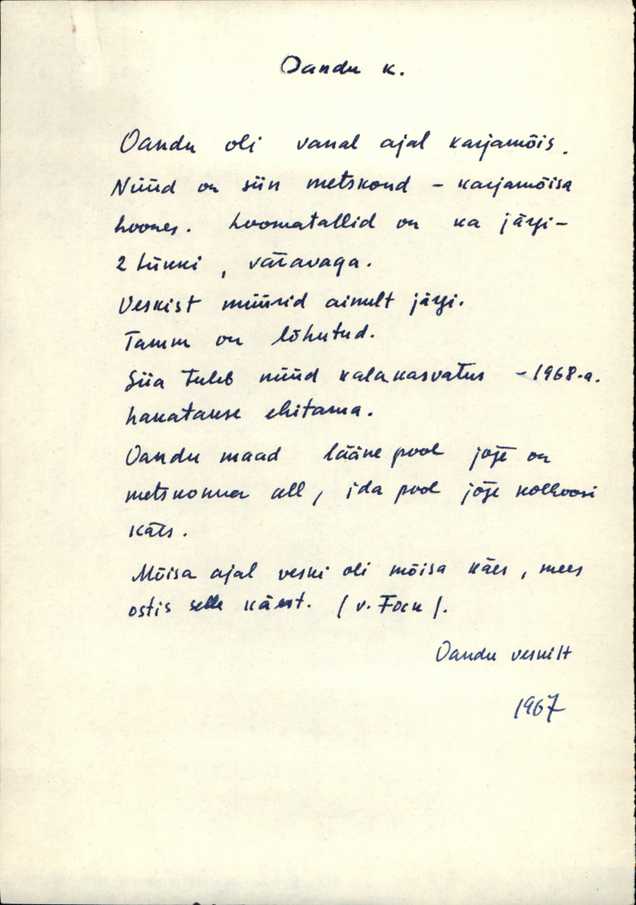 Oandu k.
Oandu oli vanal ajal karjamõis.
Nüüd on siin metskond – karjamõisa
hoones. Loomatallid on ka järji –
2 tükki, väravaga.
Veskist müürid ainult järji.
Tamm on lõhutud.
Siia tuleb nüüd kalakasvatus – 1968. a.
hakatakse ehitama.
Oandu maad lääne pool jõje on
metskonna all, ida pool jõje kolhoosi
käes.
Mõisa ajal veski oli mõisa käes, mees
ostis selle käest. (v. Fock).
Oandu veskilt
1967